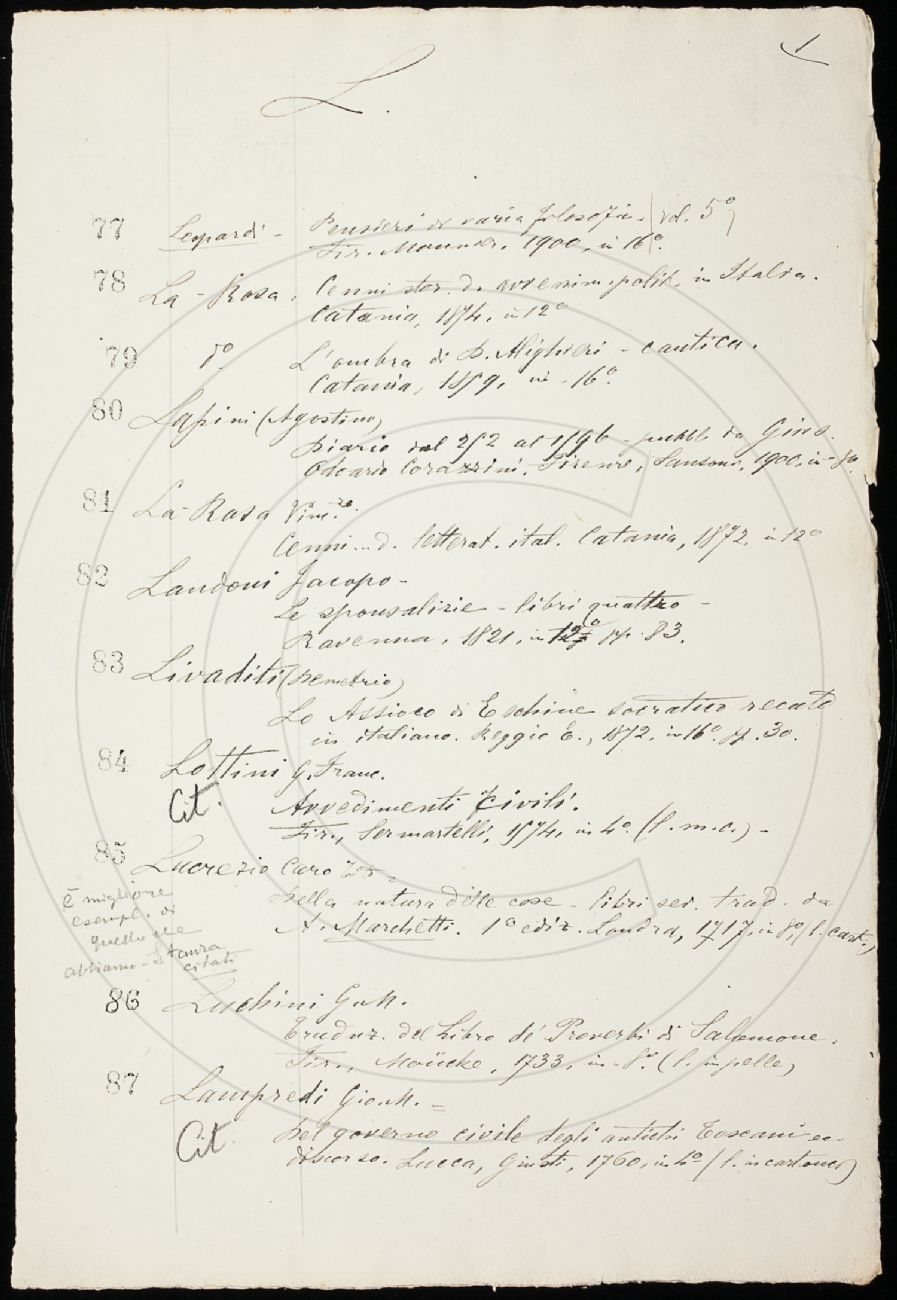 L.
77 Leopardi - Pensieri di varia filosofia - (vol. 5º)
Fir. Monnier. 1900, in 16º.
78 La-Rosa. Cenni stor. d. avvenim. polit. in Italia.
Catania, 1874. in 12º
79 dº. L'ombra di D. Alighieri - cantica.
Catania, 1859, in - 16º.
80 Lapini (Agostino)
Diario dal 252 al 1596 - pubbl. da Gius.
Odoardo Corazzini. Firenze, Sansoni, 1900, in - 8º.
81 La-Rosa Vinc.zo.
Cenni d. letterat. ital. Catania, 1872. in 12º
82 Landoni Jacopo -
Le sponsalizie - libri quattro -
Ravenna, 1821, in 12º pp. 83.
83 Livaditi (Demetrio)
Lo Assioco di Eschine socratico recato
in italiano. Reggio E., 1872. in 16º. pp. 30.
84 Lottini G. Franc.
Cit. Avvedimenti civili.
Fir., Sermartelli, 1574, in 4º. (l. m. a.) -
85 Lucrezio Caro T. -
Della natura delle cose - libri sei. trad. da
A. Marchetti. 1ª ediz. Londra, 1717, in 8º, (l. cart.)
è migliore
esempl. di
quello che
abbiamo - Stanza
citati
86 Luchini G. M.
Traduz. del Libro de' Proverbi di Salomone.
Fir., Moücke, 1733, in - 8º. (l. in pelle)
87 Lampredi Gio. M. -
Cit. Del governo civile degli antichi Toscani ec.
discorso. Lucca, Giusti, 1760, in 4º (l. in cartone)